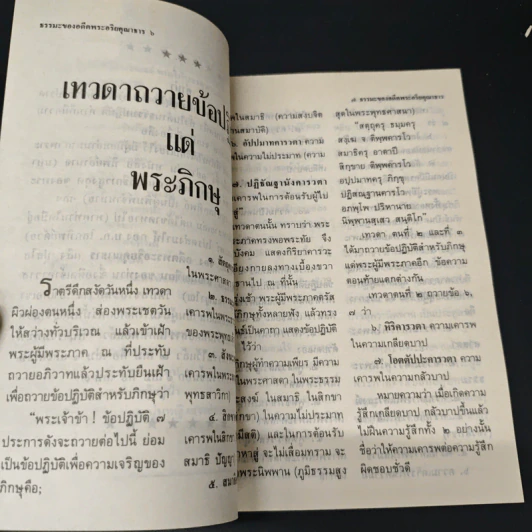 ธรรมะของอดีตพระอริยคุณาธาร ๖
เทวดาถวายข้อป
แด่
พระภิกษุ
ราตรีดึกสงัดวันหนึ่ง เทวดา
ผิวผ่องตนหนึ่ง ส่องพระเชตวัน
ให้สว่างทั่วบริเวณ แล้วเข้าเฝ้า
พระผู้มีพระภาค ณ ที่ประทับ
ถวายอภิวาทแล้วประทับยืนเฝ้า
เพื่อถวายข้อปฏิบัติสำหรับภิกษุว่า
"พระเจ้าข้า ! ข้อปฏิบัติ ๗
ประการดังจะถวายต่อไปนี้ ย่อม
เป็นข้อปฏิบัติเพื่อความเจริญของ
ภิกษุคือ;
ในพระศาส
เคารพในพระ
ของพระพุทธ
๓. สัง
เคารพในพระ
พุทธสาวิกา
เคารพในสิกขา
สมาธิ ปัญญา
๗ ธรรมะของอดีตพระอริยคุณาธาร
ในสมาธิ (ความสงบจิต
๖. อัปปมาทคารวตา
ในความไม่ประมาท (ความ
๗. ปฏิสัณฐานังคารวตา
เคารพในการต้อนรับผู้ไป
เทวดาตนนั้น ทราบว่า พระ
ระภาคทรงพอพระทัย จึง
บังคม แสดงกิริยาคารวะ
เฉียงกายลงทางเบื่องขวา
รุ่งเช้า พระผู้มีพระภาคตรัส
ภิกษุทั้งหลายฟัง แล้วทรง
นเป็นคาถา แสดงข้อปฏิบัติ
ไว้ว่า
ภิกษุผู้ทำความเพียร มีความ
ในพระศาสดา ในพระธรรม
ระสงฆ์ ในสมาธิ ในสิกขา
กขา) ในความไม่ประมาท
มีสติ) และในการต้อนรับ
จะไม่เสื่อมทราม จะ
พระนิพพาน (ภูมิธรรมสูง
สุดในพระพุทธศาสนา)
"สตฺถุครุ ธมฺมครุ
สงฺเฆ จ ติพฺพคารโว
สมาธิครุ อาตาปี
สิกฺขาย ติพฺพคารโว
อปฺปมาทครุ ภิกฺขุ
ปฏิสณฺฐานคารโว
อภพฺโพ ปริหานาย
นิพฺพานสฺเสว สนฺติเก"
เทวดา ตนที่ ๒ และที่ ๓
ได้มาถวายข้อปฏิบัติสำหรับภิกษุ
แด่พระผู้มีพระภาคอีก ข้อความ
ตอนท้ายแตกต่างกัน
เทวดาตนที่ ๒ ถวายข้อ ๖,
๗ ว่า
๖. หิริคารวตา ความเคารพ
ในความเกลียดบาป
๗. โอตตัปปะคารวตา ความ
เคารพในความกลัวบาป
หมายความว่า เมื่อเกิดความ
รู้สึกเกลียดบาป กลัวบาปขึ้นแล้ว
ไม่ฝืนความรู้สึกทั้ง ๒ อย่างนั้น
ชื่อว่าให้ความเคารพต่อความรู้สึก
ผิดชอบชั่วดี